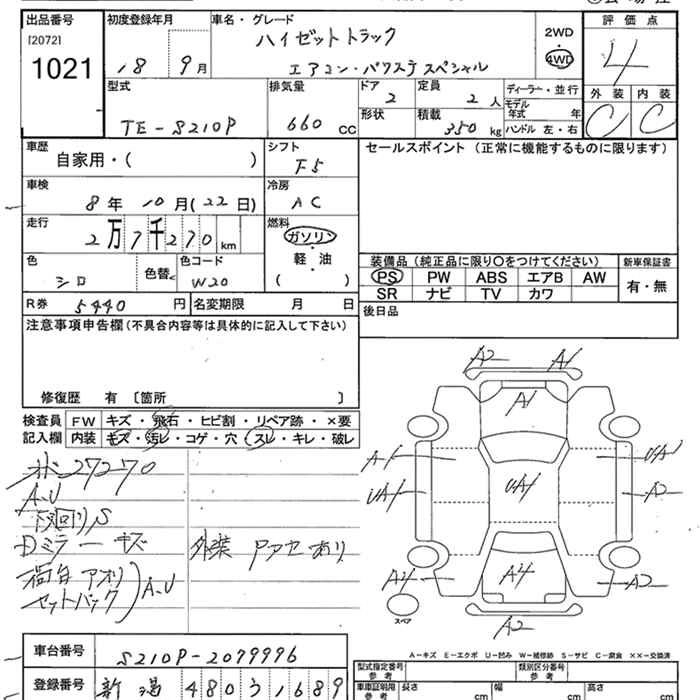 出品番号 初度登録年月 車名・グレード 評価点
[2072]
1021
18 9月
ハイゼットトラック
エアコン・パワステスペシャル
2WD
4WD
4
外装 内装
C C
型式 排気量 ドア 定員 ディーラー・並行
TE-S210P 660 CC 2 2人
モデル年式 年
形状 積載 350 kg ハンドル 左・右
車歴 シフト セールスポイント (正常に機能するものに限ります)
自家用・( ) F5
車検 冷房
8年 10月(22日) AC
走行 燃料
2万7千270 km ガソリン
軽・油
( )
色 色コード
シロ 色替< W20
装備品 (純正品に限り○をつけてください) 新車保証書
PS PW ABS エアB AW 有・無
SR ナビ TV カワ
R券 5440 円 名変期限 月 日
後日品
注意事項申告欄 (不具合内容等は具体的に記入して下さい)
修復歴 有 〔箇所 〕
検査員 FW キズ・飛石・ヒビ割・リペア跡・×要
記入欄 内装 キズ・汚レ・コゲ・穴・スレ・キレ・破レ
27270
A、U
下回りS
Dミラーキズ
外装 Pアセあり
荷台アオリ
セットバック A、U
A2 A1
A1
A1 UA1
UA1 UA1 A2
A2 A4 A2
A2
スペア
A-キズ E-エクボ U-凹み W-補修跡 S-サビ C-腐食 ××-交換済
車台番号 S210P-2079996
登録番号 新潟 480 う 1689
型式指定番号 類別区分番号
参考 参考
車庫証明用 長さ 幅 高さ
参考 cm cm cm